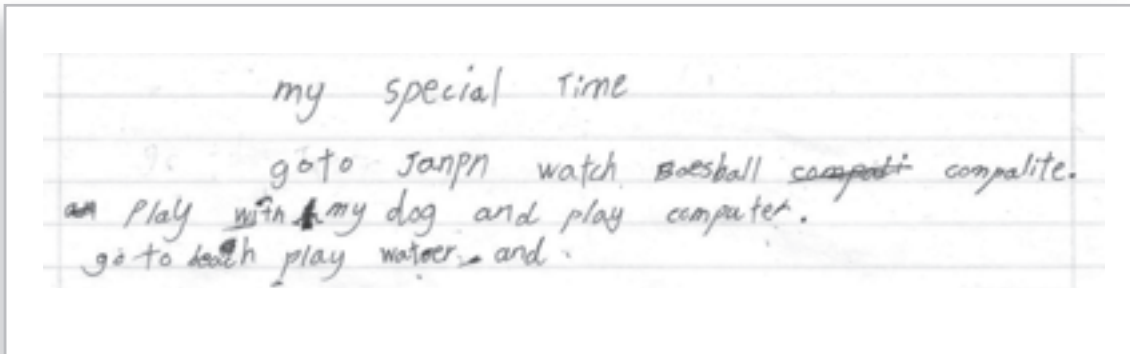 my special Time
goto Janpn watch Boesball compati compalite.
play with my dog and play computer.
go to beach play watoer. and.